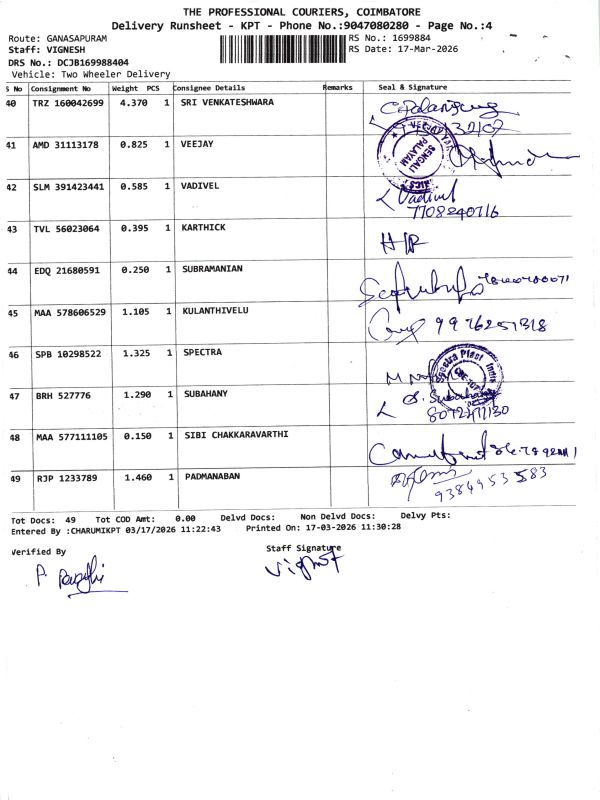 THE PROFESSIONAL COURIERS, COIMBATORE
Delivery Runsheet - KPT - Phone No.:9047080280 - Page No.:4
Route: GANASAPURAM RS No.: 1699884
Staff: VIGNESH RS Date: 17-Mar-2026
DRS No.: DCJB169988404
Vehicle: Two Wheeler Delivery
S No Consignment No Weight PCS Consignee Details Remarks Seal & Signature
40 TRZ 160042699 4.370 1 SRI VENKATESHWARA
41 AMD 31113178 0.825 1 VEEJAY
SENGALI PALAYAM
42 SLM 391423441 0.585 1 VADIVEL Vadivel
7708240716
43 TVL 56023064 0.395 1 KARTHICK
44 EDQ 21680591 0.250 1 SUBRAMANIAN
45 MAA 578606529 1.105 1 KULANTHIVELU 9976251318
46 SPB 10298522 1.325 1 SPECTRA Spectra Plast India
47 BRH 527776 1.290 1 SUBAHANY S. Subahany
48 MAA 577111105 0.150 1 SIBI CHAKKARAVARTHI
49 RJP 1233789 1.460 1 PADMANABAN
9384953583
Tot Docs: 49 Tot COD Amt: 0.00 Delvd Docs: Non Delvd Docs: Delvy Pts:
Entered By :CHARUMIKPT 03/17/2026 11:22:43 Printed On: 17-03-2026 11:30:28
Verified By Staff Signature